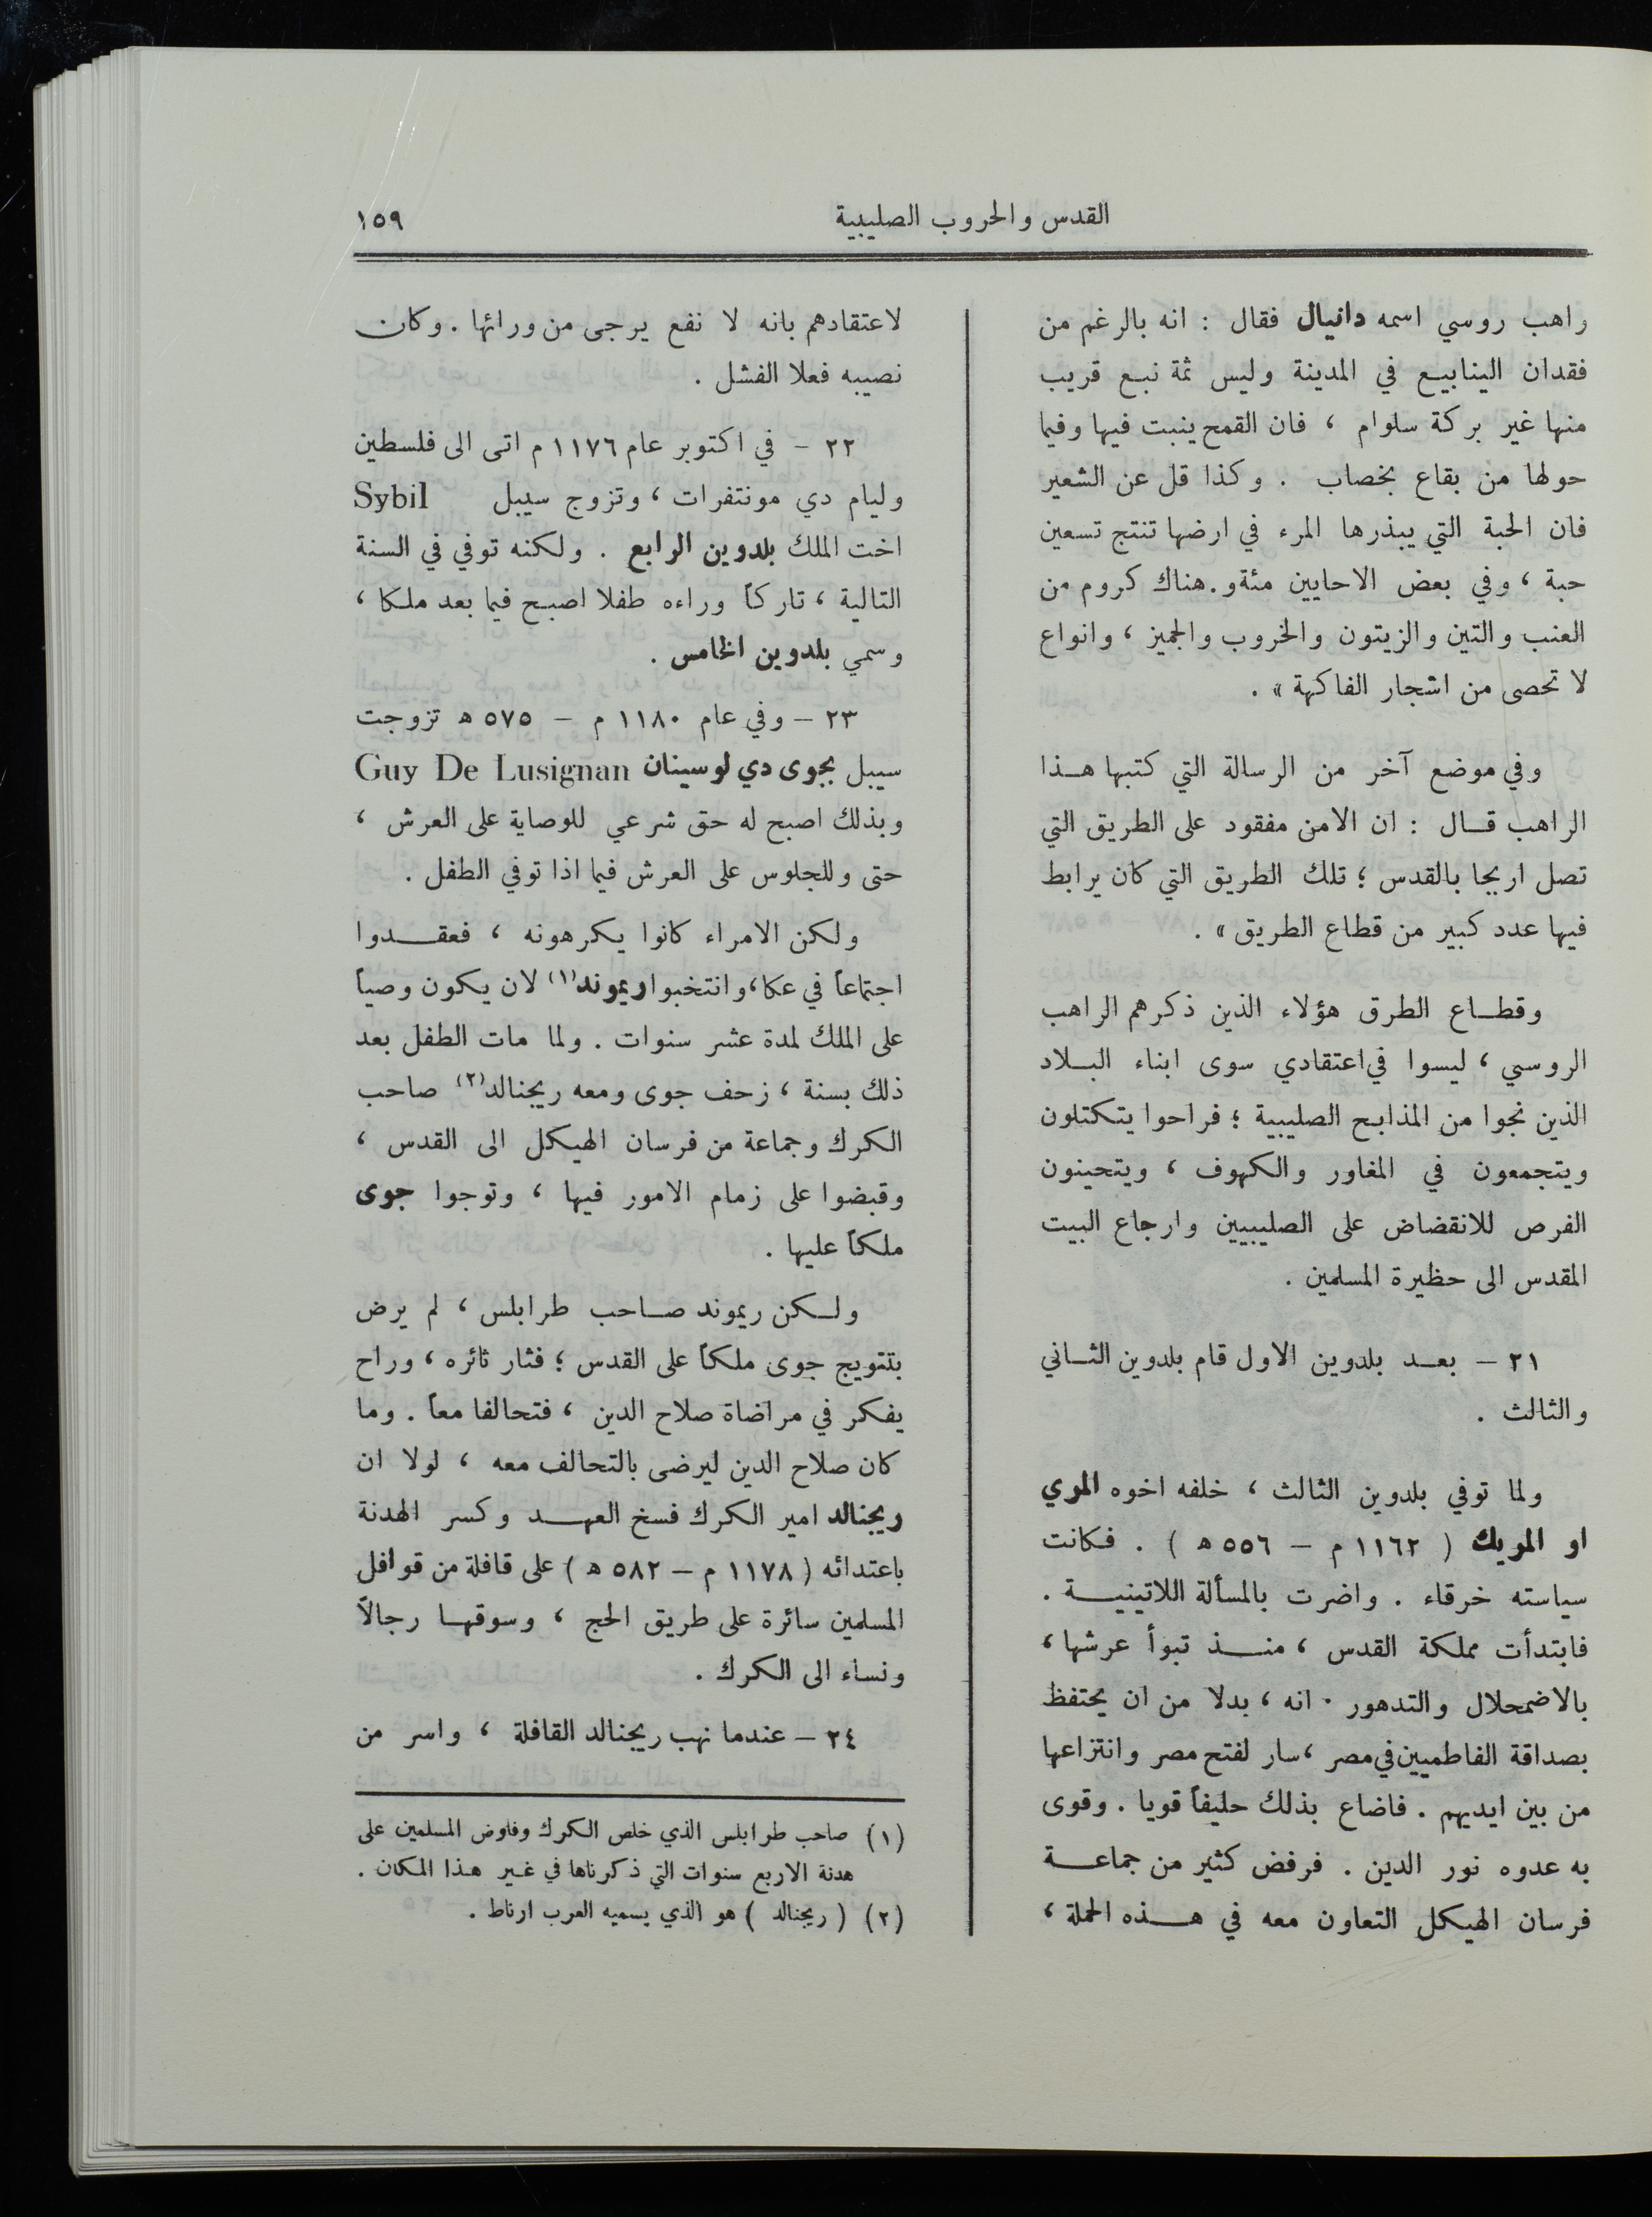 القدس والحروب الصليبية
١٥٩
راهب روسي اسمه دانيال فقال : انه بالرغم من
فقدان الينابيع في المدينة وليس ثمة نبع قريب
منها غير بركة سلوام ، فان القمح ينبت فيها وفيما
حولها من بقاع بخصاب . وكذا قل عن الشعير
فان الحبة التي يبذرها المرء في ارضها تنتج تسعين
حبة ، وفي بعض الاحايين مئةو.هناك كروم من
العنب والتين والزيتون والخروب والجميز ، وانواع
لا تحصى من اشجار الفاكهة » .
وفي موضع آخر من الرسالة التي كتبها هذا
الراهب قال : ان الامن مفقود على الطريق التي
تصل اريحا بالقدس ؛ تلك الطريق التي كان يرابط
فيها عدد كبير من قطاع الطريق » .
وقطاع الطرق هؤلاء الذين ذكرهم الراهب
الروسي ، ليسوا في اعتقادي سوى ابناء البلاد
الذين نجوا من المذابح الصليبية ؛ فراحوا يتكتلون
ويتجمعون في المغاور والكهوف ، ويتحينون
الفرص للانقضاض على الصليبيين وارجاع البيت
المقدس الى حظيرة المسلمين .
٢١ – بعد بلدوين الاول قام بلدوين الثاني
والثالث .
ولما توفي بلدوين الثالث ، خلفه اخوه المري
او المريك ( ١١٦٢ م – ٥٥٦ ه ) . فكانت
سياسته خرقاء . واضرت بالمسألة اللاتينية .
فابتدأت مملكة القدس ، منذ تبوأ عرشها ،
بالاضمحلال والتدهور . انه ، بدلا من ان يحتفظ
بصداقة الفاطميين في مصر ، سار لفتح مصر وانتزاعها
من بين ايديهم . فاضاع بذلك حليفاً قويا . وقوى
به عدوه نور الدين . فرفض كثير من جماعة
فرسان الهيكل التعاون معه في هذه الحملة ،
لاعتقادهم بانه لا نفع يرجى من ورائها . وكان
نصيبه فعلا الفشل .
٢٢ – في اكتوبر عام ١١٧٦ م اتى الى فلسطين
وليام دي مونتفرات ، وتزوج سيبل Sybil
اخت الملك بلدوين الرابع . ولكنه توفي في السنة
التالية ، تاركاً وراءه طفلا اصبح فيما بعد ملكا ،
وسمي بلدوين الخامس .
٢٣ – وفي عام ١١٨٠ م – ٥٧٥ ه تزوجت
سيبل بجوى دي لوسينان Guy De Lusignan
وبذلك اصبح له حق شرعي للوصاية على العرش ،
حتى وللجلوس على العرش فيما اذا توفي الطفل .
ولكن الامراء كانوا يكرهونه ، فعقدوا
اجتماعاً في عكا، وانتخبوا ريموند(١) لان يكون وصياً
على الملك لمدة عشر سنوات . ولما مات الطفل بعد
ذلك بسنة ، زحف جوى ومعه ريجنالد(٢) صاحب
الكرك وجماعة من فرسان الهيكل الى القدس ،
وقبضوا على زمام الامور فيها ، وتوجوا جوى
ملكاً عليها .
ولكن ريموند صاحب طرابلس ، لم يرض
بتتويج جوى ملكاً على القدس ؛ فثار ثائره ، وراح
يفكر في مراضاة صلاح الدين ، فتحالفا معاً . وما
كان صلاح الدين ليرضى بالتحالف معه ، لولا ان
ريجنالد امير الكرك فسخ العهد وكسر الهدنة
باعتدائه ( ١١٧٨ م – ٥٨٢ ه ) على قافلة من قوافل
المسلمين سائرة على طريق الحج ، وسوقها رجالاً
ونساء الى الكرك .
٢٤ – عندما نهب ريجنالد القافلة ، واسر من
(١) صاحب طرابلس الذي خلص الكرك وفاوض المسلمين على
هدنة الاربع سنوات التي ذكرناها في غير هذا المكان .
(٢) ( ريجنالد ) هو الذي يسميه العرب ارناط .